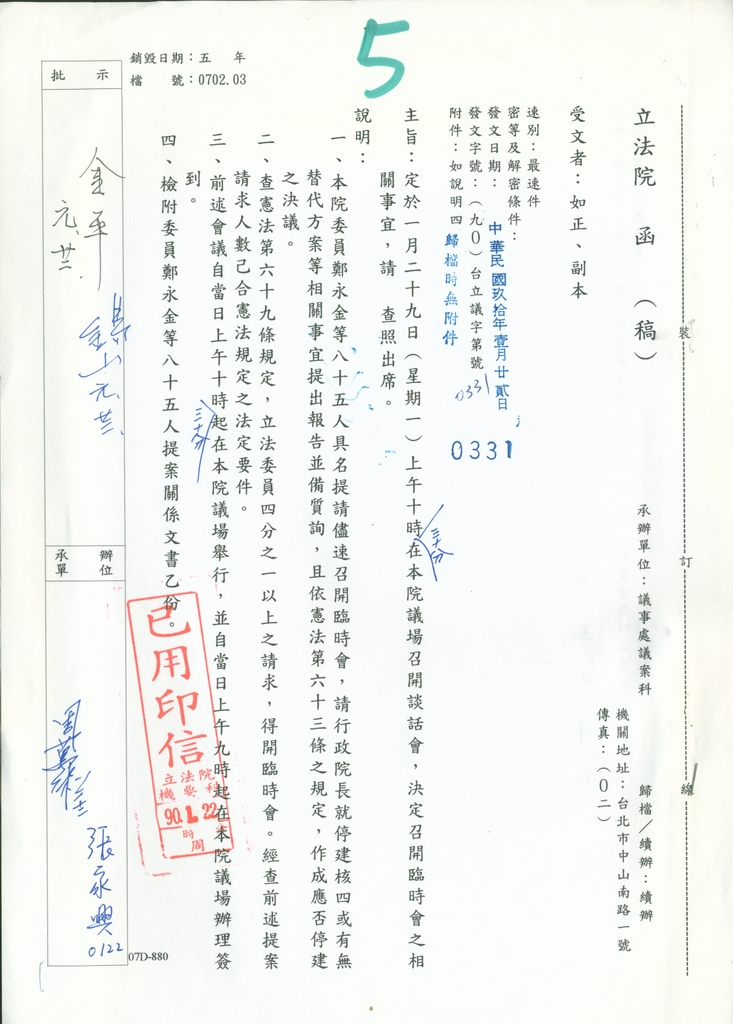 5
銷毀日期：五　年
檔　號：0702.03
裝
訂
線
立法院　函　（稿）
承辦單位：議事處議案科
歸檔／續辦：續辦
機關地址：台北市中山南路一號
傳真：（０二）
受文者：如正、副本
速別：最速件
密等及解密條件：
發文日期：中華民國玖拾年壹月廿貳日
發文字號：（九０）台立議字第號
0331
0331
附件：如說明四
歸檔時無附件
主旨：定於一月二十九日（星期一）上午十時在本院議場召開談話會，決定召開臨時會之相
三十分
關事宜，請　查照出席。
說明：
一、本院委員鄭永金等八十五人具名提請儘速召開臨時會，請行政院長就停建核四或有無
替代方案等相關事宜提出報告並備質詢，且依憲法第六十三條之規定，作成應否停建
之決議。
二、查憲法第六十九條規定，立法委員四分之一以上之請求，得開臨時會。經查前述提案
請求人數已合憲法規定之法定要件。
三、前述會議自當日上午十時起在本院議場舉行，並自當日上午九時起在本院議場辦理簽
三十分
到。
四、檢附委員鄭永金等八十五人提案關係文書乙份。
已用印信
立法院
機要科
90.1.22
時
周
批　示
金平
元、廿二
承辦
單位
張家興
0122
07D-880